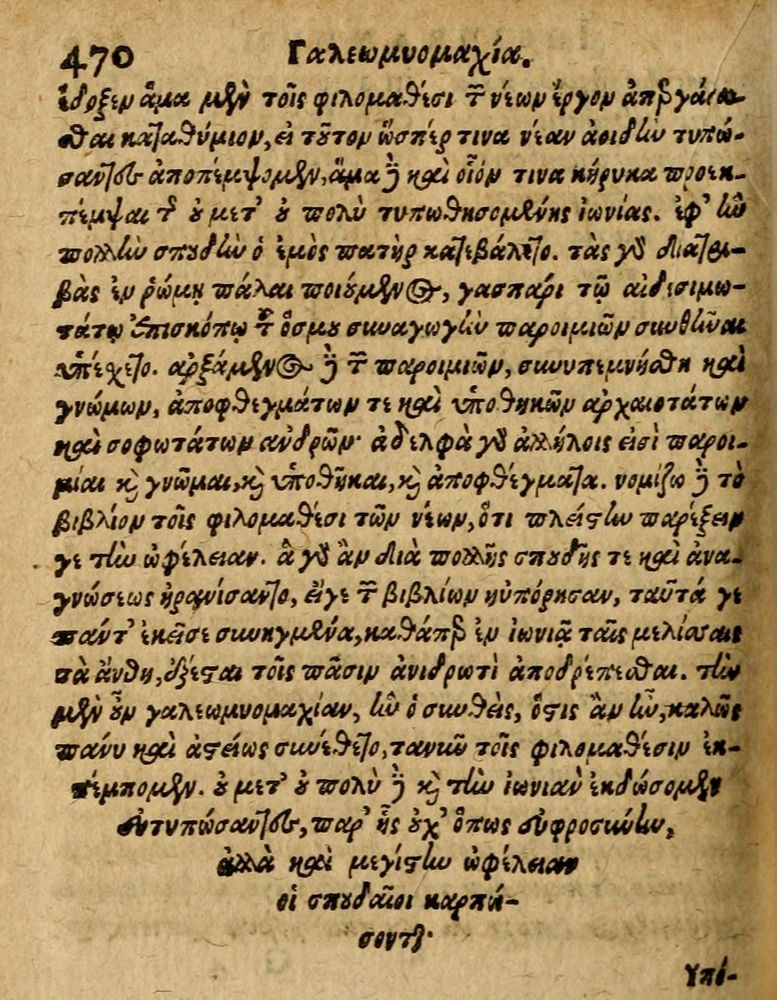 470 Γαλεωμυομαχία.
ἔδοξεν ἅμα μὲν τοῖς φιλομαθέσι τῶν νέων ἔργον ἀπεργάσα-
σθαι καταθύμιον, εἰ τοῦτον ὥσπέρ τινα νέαν ἀοιδὴν τυπώ-
σαντες ἀποπέμψομεν, ἅμα δὲ καὶ οἷόν τινα κήρυκα προεκ-
πέμψαι τῆς οὐ μετ' οὐ πολὺ τυπωθησομένης ἰωνίας. ἐφ' ἣν
πολλὴν σπουδὴν ὁ ἐμὸς πατὴρ κατεβάλετο. τὰς γὰρ διατρι-
βὰς ἐν ῥώμῃ πάλαι ποιούμενος, γασπάρι τῷ αἰδεσιμω-
τάτῳ ἐπισκόπῳ τοῦ ὄσμου συναγωγὴν παροιμιῶν συνθεῖναι
ὑπέσχετο. ἀρξάμενος δὲ τῶν παροιμιῶν, συνυπεμνήσθη καὶ
γνώμων, ἀποφθεγμάτων τε καὶ ὑποθηκῶν ἀρχαιοτάτων
καὶ σοφωτάτων ἀνδρῶν· ἀδελφὰ γὰρ ἀλλήλοις εἰσὶ παροι-
μίαι καὶ γνῶμαι, καὶ ὑποθῆκαι, καὶ ἀποφθέγματα. νομίζω δὲ τὸ
βιβλίον τοῖς φιλομαθέσι τῶν νέων, ὅτι πλείστην παρέξειν
γε τὴν ὠφέλειαν. ἃ γὰρ ἂν διὰ πολλῆς σπουδῆς τε καὶ ἀνα-
γνώσεως ἠρανίσαντο, εἴγε τῶν βιβλίων ηὐπόρησαν, ταῦτά γε
πάντ' ἐκεῖσε συνηγμένα, καθάπερ ἐν ἰωνιᾷ ταῖς μελίσσαις
τὰ ἄνθη, ἔξεσται τοῖς πᾶσιν ἀνιδρωτὶ ἀποδρέπεσθαι. τὴν
μὲν οὖν γαλεωμυομαχίαν, ἣν ὁ συνθεὶς, ὅστις ἂν ἦν, καλῶς
πάνυ καὶ ἀστείως συνέθετο, τανῦν τοῖς φιλομαθέσιν ἐκ-
πέμπομεν. οὐ μετ' οὐ πολὺ δὲ καὶ τὴν ἰωνιὰν ἐκδώσομεν
ἐντυπώσαντες, παρ' ἧς οὐχ' ὅπως εὐφροσύνην,
ἀλλὰ καὶ μεγίστην ὠφέλειαν
οἱ σπουδαῖοι καρπώ-
σονται·
Υπό-